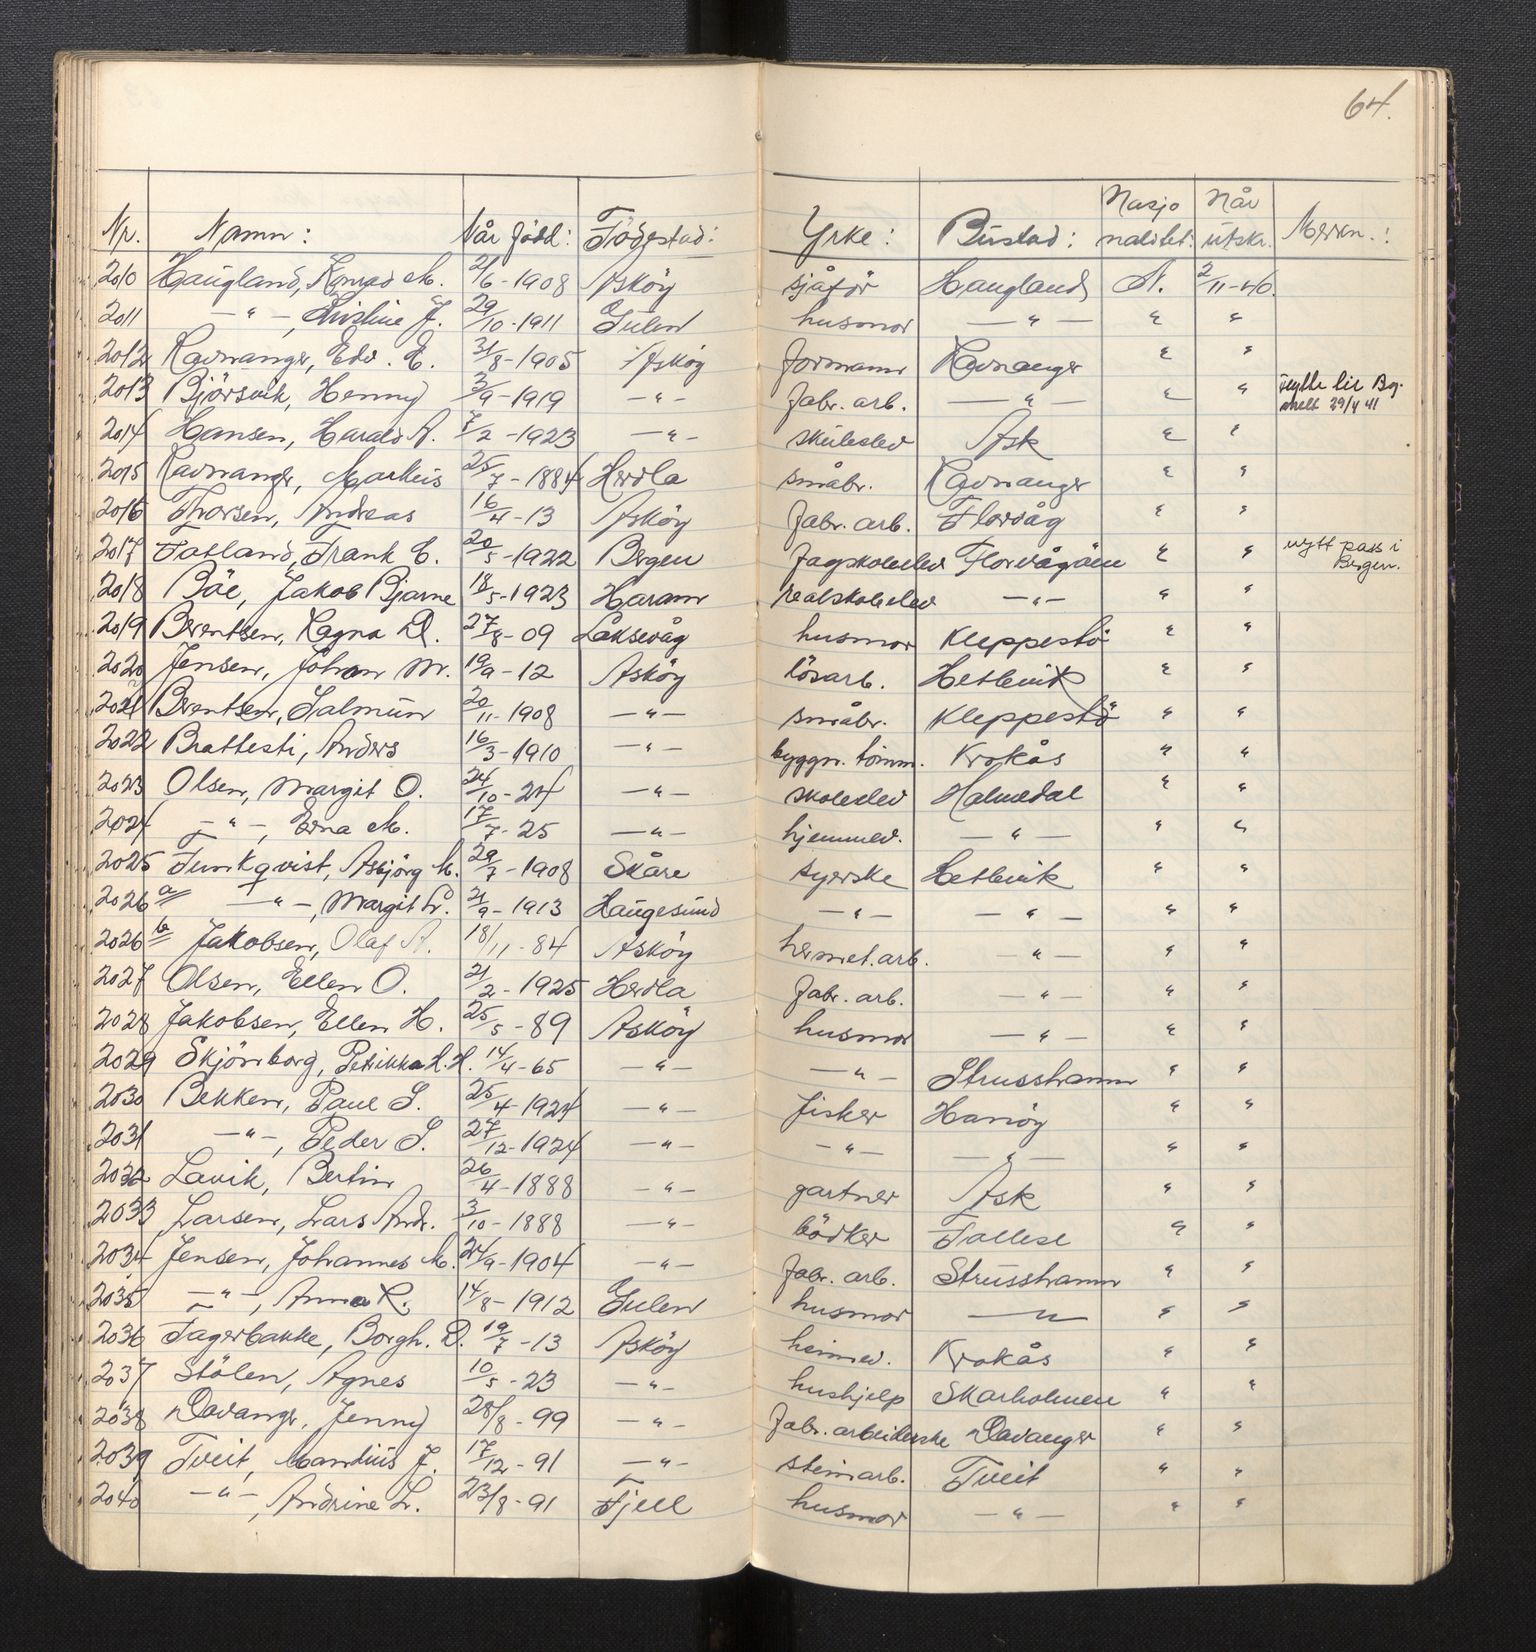 64.
Nr. Namn: Når född: Födestad: Yrke: Bustad: Nasjonalitet: Når utskr. Merkn.:
2010 Haugland, Konrad M. 21/6-1908 Asköy sjåför Haugland N. 2/11-40.
2011 -"-, Kristine J. 29/10-1911 Gulen husmor -"- " "
2012 Ravnanger, Edv. E. 31/8-1905 Asköy formann Ravnanger " "
2013 Björsvik, Henny 3/9-1919 -"- fabr. arb. -"- " " flytte til Bg. meldt 29/4 41
2014 Hansen, Harald A. 7/2-1923 -"- skuleelev Ask " "
2015 Ravnanger, Markus 25/7-1884 Herdla småbr. Ravnanger " "
2016 Thorsen, Andreas 16/4-13 Asköy fabr. arb. Florvåg " "
2017 Fatland, Frank C. 20/5-1922 Bergen fagskoleelev Florvågöen " " nytt pass i Bergen.
2018 Böe, Jakob Bjarne 18/5-1923 Haram realskoleelev -"- " "
2019 Berentsen, Ragna D. 27/8-09 Laksevåg husmor Kleppestö " "
2020 Jensen, Johan M. 19/9-12 Asköy lösarb. Hetlevik " "
2021 Berentsen, Salmun 20/11-1908 -"- småbr. Kleppestö " "
2022 Brattesti, Anders 16/3-1910 -"- byggn. tömm. Krokås " "
2023 Olsen, Margit O. 24/10-24 -"- skoleelev Halvedal " "
2024 -"-, Edna M. 17/7-25 -"- hjemmev. -"- " "
2025 Funkqvist, Asbjörg M. 29/7-1908 Skåre syerske Hetlevik " "
2026 a -"-, Margit L. 21/9-1913 Haugesund -"- -"- " "
2026 b Jakobsen, Olaf A. 18/11-84 Asköy hermet. arb. -"- " "
2027 Olsen, Ellen O. 21/2-1925 Herdla fabr. arb. -"- " "
2028 Jakobsen, Ellen H. 25/5-89 Asköy husmor -"- " "
2029 Skjönborg, Petrikka H. H. 14/4-65 -"- -"- Strusshamn " "
2030 Bekken, Paul S. 25/4-1924 -"- fisker Hanöy " "
2031 -"-, Peder S. 27/12-1924 -"- -"- -"- " "
2032 Lavik, Bertin 26/4-1888 -"- gartner Ask " "
2033 Larsen, Lars Andr. 3/10-1888 -"- bödker Follese " "
2034 Jensen, Johannes M. 24/9-1904 -"- fabr. arb. Strusshamn " "
2035 -"-, Anna R. 14/8-1912 Gulen husmor -"- " "
2036 Fagerbakke, Borgh. D. 19/7-13 Asköy heimev. Krokås " "
2037 Stölen, Agnes 10/5-23 -"- hushjelp Skarholmen " "
2038 Davanger, Jenny 28/8-99 -"- fabr. arbeiderske Davanger " "
2039 Tveit, Mandius J. 17/12-91 -"- steinarb. Tveit " "
2040 -"-, Andrine L. 23/8-91 Fjell husmor -"- " "